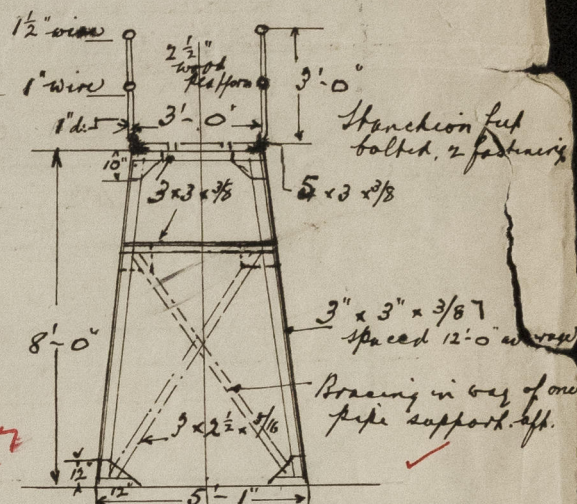 1½" wire
1" wire
2½"
wood
platform
3'-0"
3'-0"
1" d:
Stanchion feet
bolted, 2 fastenings
10"
3 x 3 x 3/8
5 x 3 x 3/8
8'-0"
3" x 3" x 3/8
spaced 12'-0" average
Bracing in way of one
pipe support. aft.
3 x 2½ x 5/16
12"
12"
5'-1"